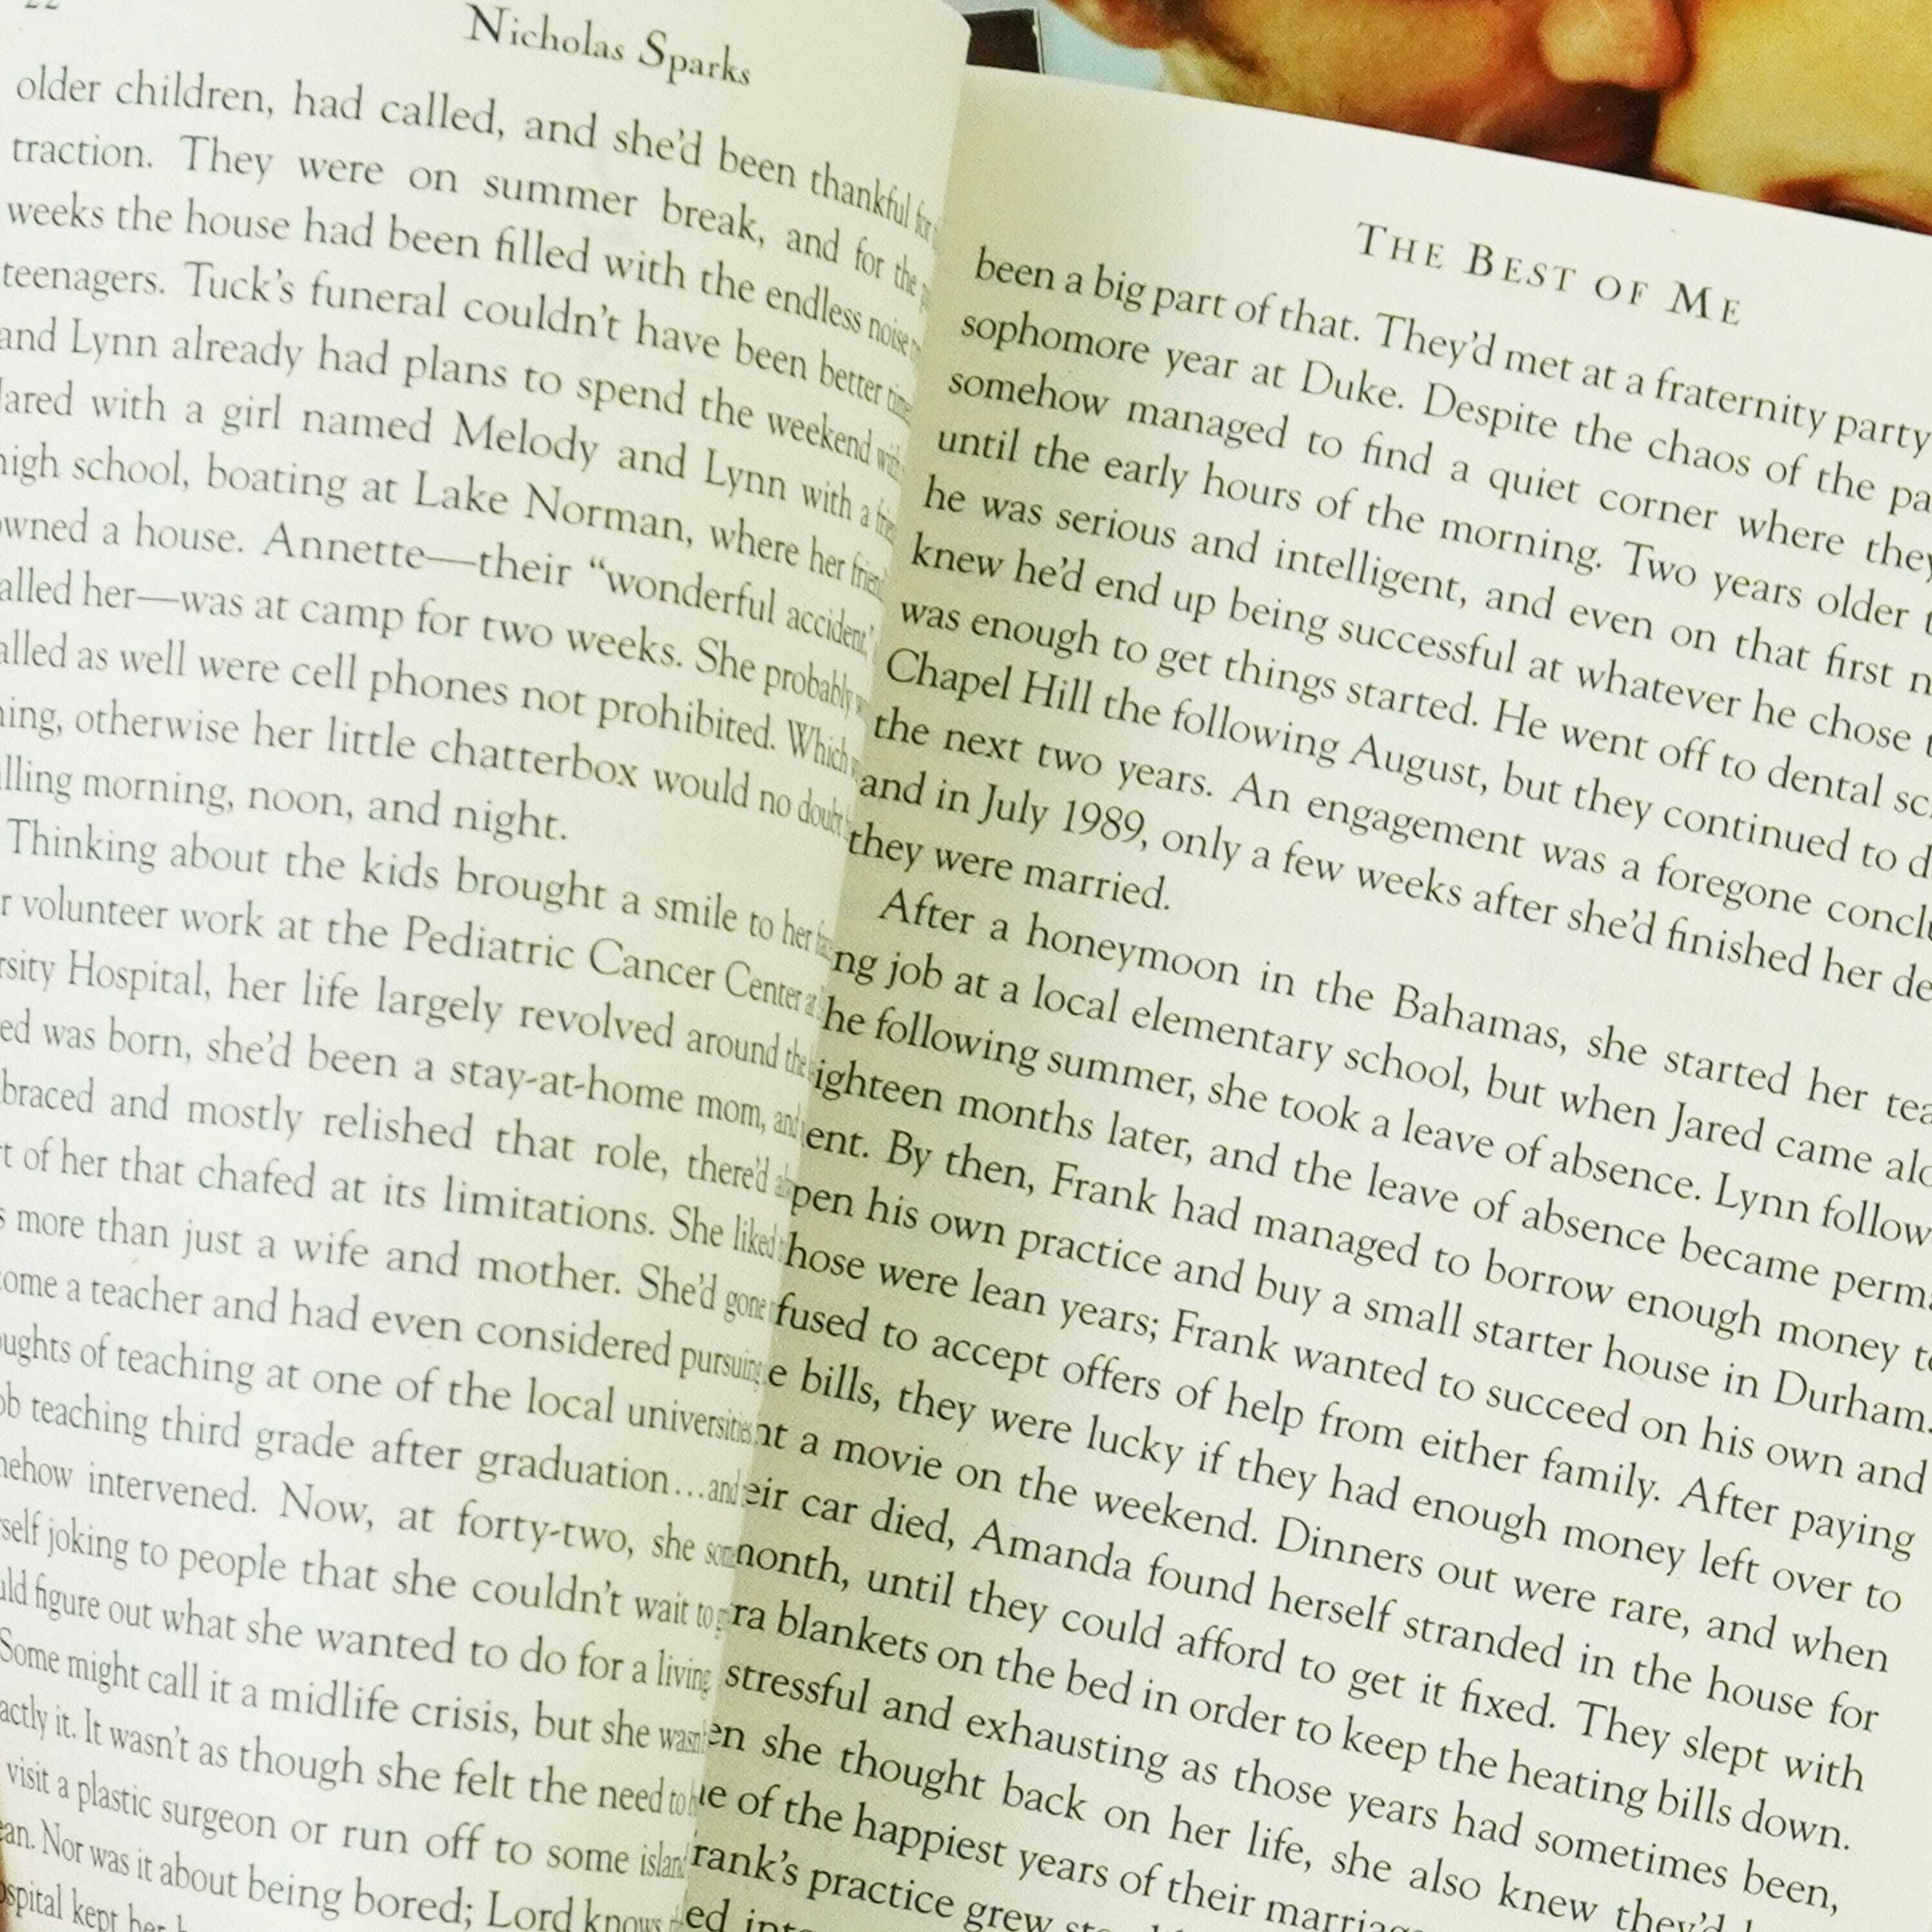 22
Nicholas Sparks
older children, had called, and she'd been thankful for
traction. They were on summer break, and for the
weeks the house had been filled with the endless noise
teenagers. Tuck's funeral couldn't have been better
and Lynn already had plans to spend the weekend
Jared with a girl named Melody and Lynn with a
high school, boating at Lake Norman, where her
owned a house. Annette—their "wonderful accident,"
alled her—was at camp for two weeks. She probably
alled as well were cell phones not prohibited. Which
ning, otherwise her little chatterbox would no doubt
lling morning, noon, and night.
Thinking about the kids brought a smile to her
r volunteer work at the Pediatric Cancer Center
rsity Hospital, her life largely revolved around the
ed was born, she'd been a stay-at-home mom, and
braced and mostly relished that role, there'd
t of her that chafed at its limitations. She liked
s more than just a wife and mother. She'd gone
come a teacher and had even considered pursuing
oughts of teaching at one of the local universities
ob teaching third grade after graduation...and
mehow intervened. Now, at forty-two, she
self joking to people that she couldn't wait to
uld figure out what she wanted to do for a living.
Some might call it a midlife crisis, but she
actly it. It wasn't as though she felt the need to
visit a plastic surgeon or run off to some
ean. Nor was it about being bored; Lord knows
ospital kept her
THE BEST OF ME
been a big part of that. They'd met at a fraternity party
sophomore year at Duke. Despite the chaos of the pa
somehow managed to find a quiet corner where they
until the early hours of the morning. Two years older
he was serious and intelligent, and even on that first
knew he'd end up being successful at whatever he chose
was enough to get things started. He went off to dental sc
Chapel Hill the following August, but they continued to d
the next two years. An engagement was a foregone conclu
and in July 1989, only a few weeks after she'd finished her de
they were married.
After a honeymoon in the Bahamas, she started her tea
ng job at a local elementary school, but when Jared came alo
he following summer, she took a leave of absence. Lynn follow
ighteen months later, and the leave of absence became perma
ent. By then, Frank had managed to borrow enough money to
pen his own practice and buy a small starter house in Durham.
hose were lean years; Frank wanted to succeed on his own and
fused to accept offers of help from either family. After paying
e bills, they were lucky if they had enough money left over to
nt a movie on the weekend. Dinners out were rare, and when
eir car died, Amanda found herself stranded in the house for
month, until they could afford to get it fixed. They slept with
ra blankets on the bed in order to keep the heating bills down.
stressful and exhausting as those years had sometimes been,
en she thought back on her life, she also knew they'd
e of the happiest years of their marriag
rank's practice grew
ed